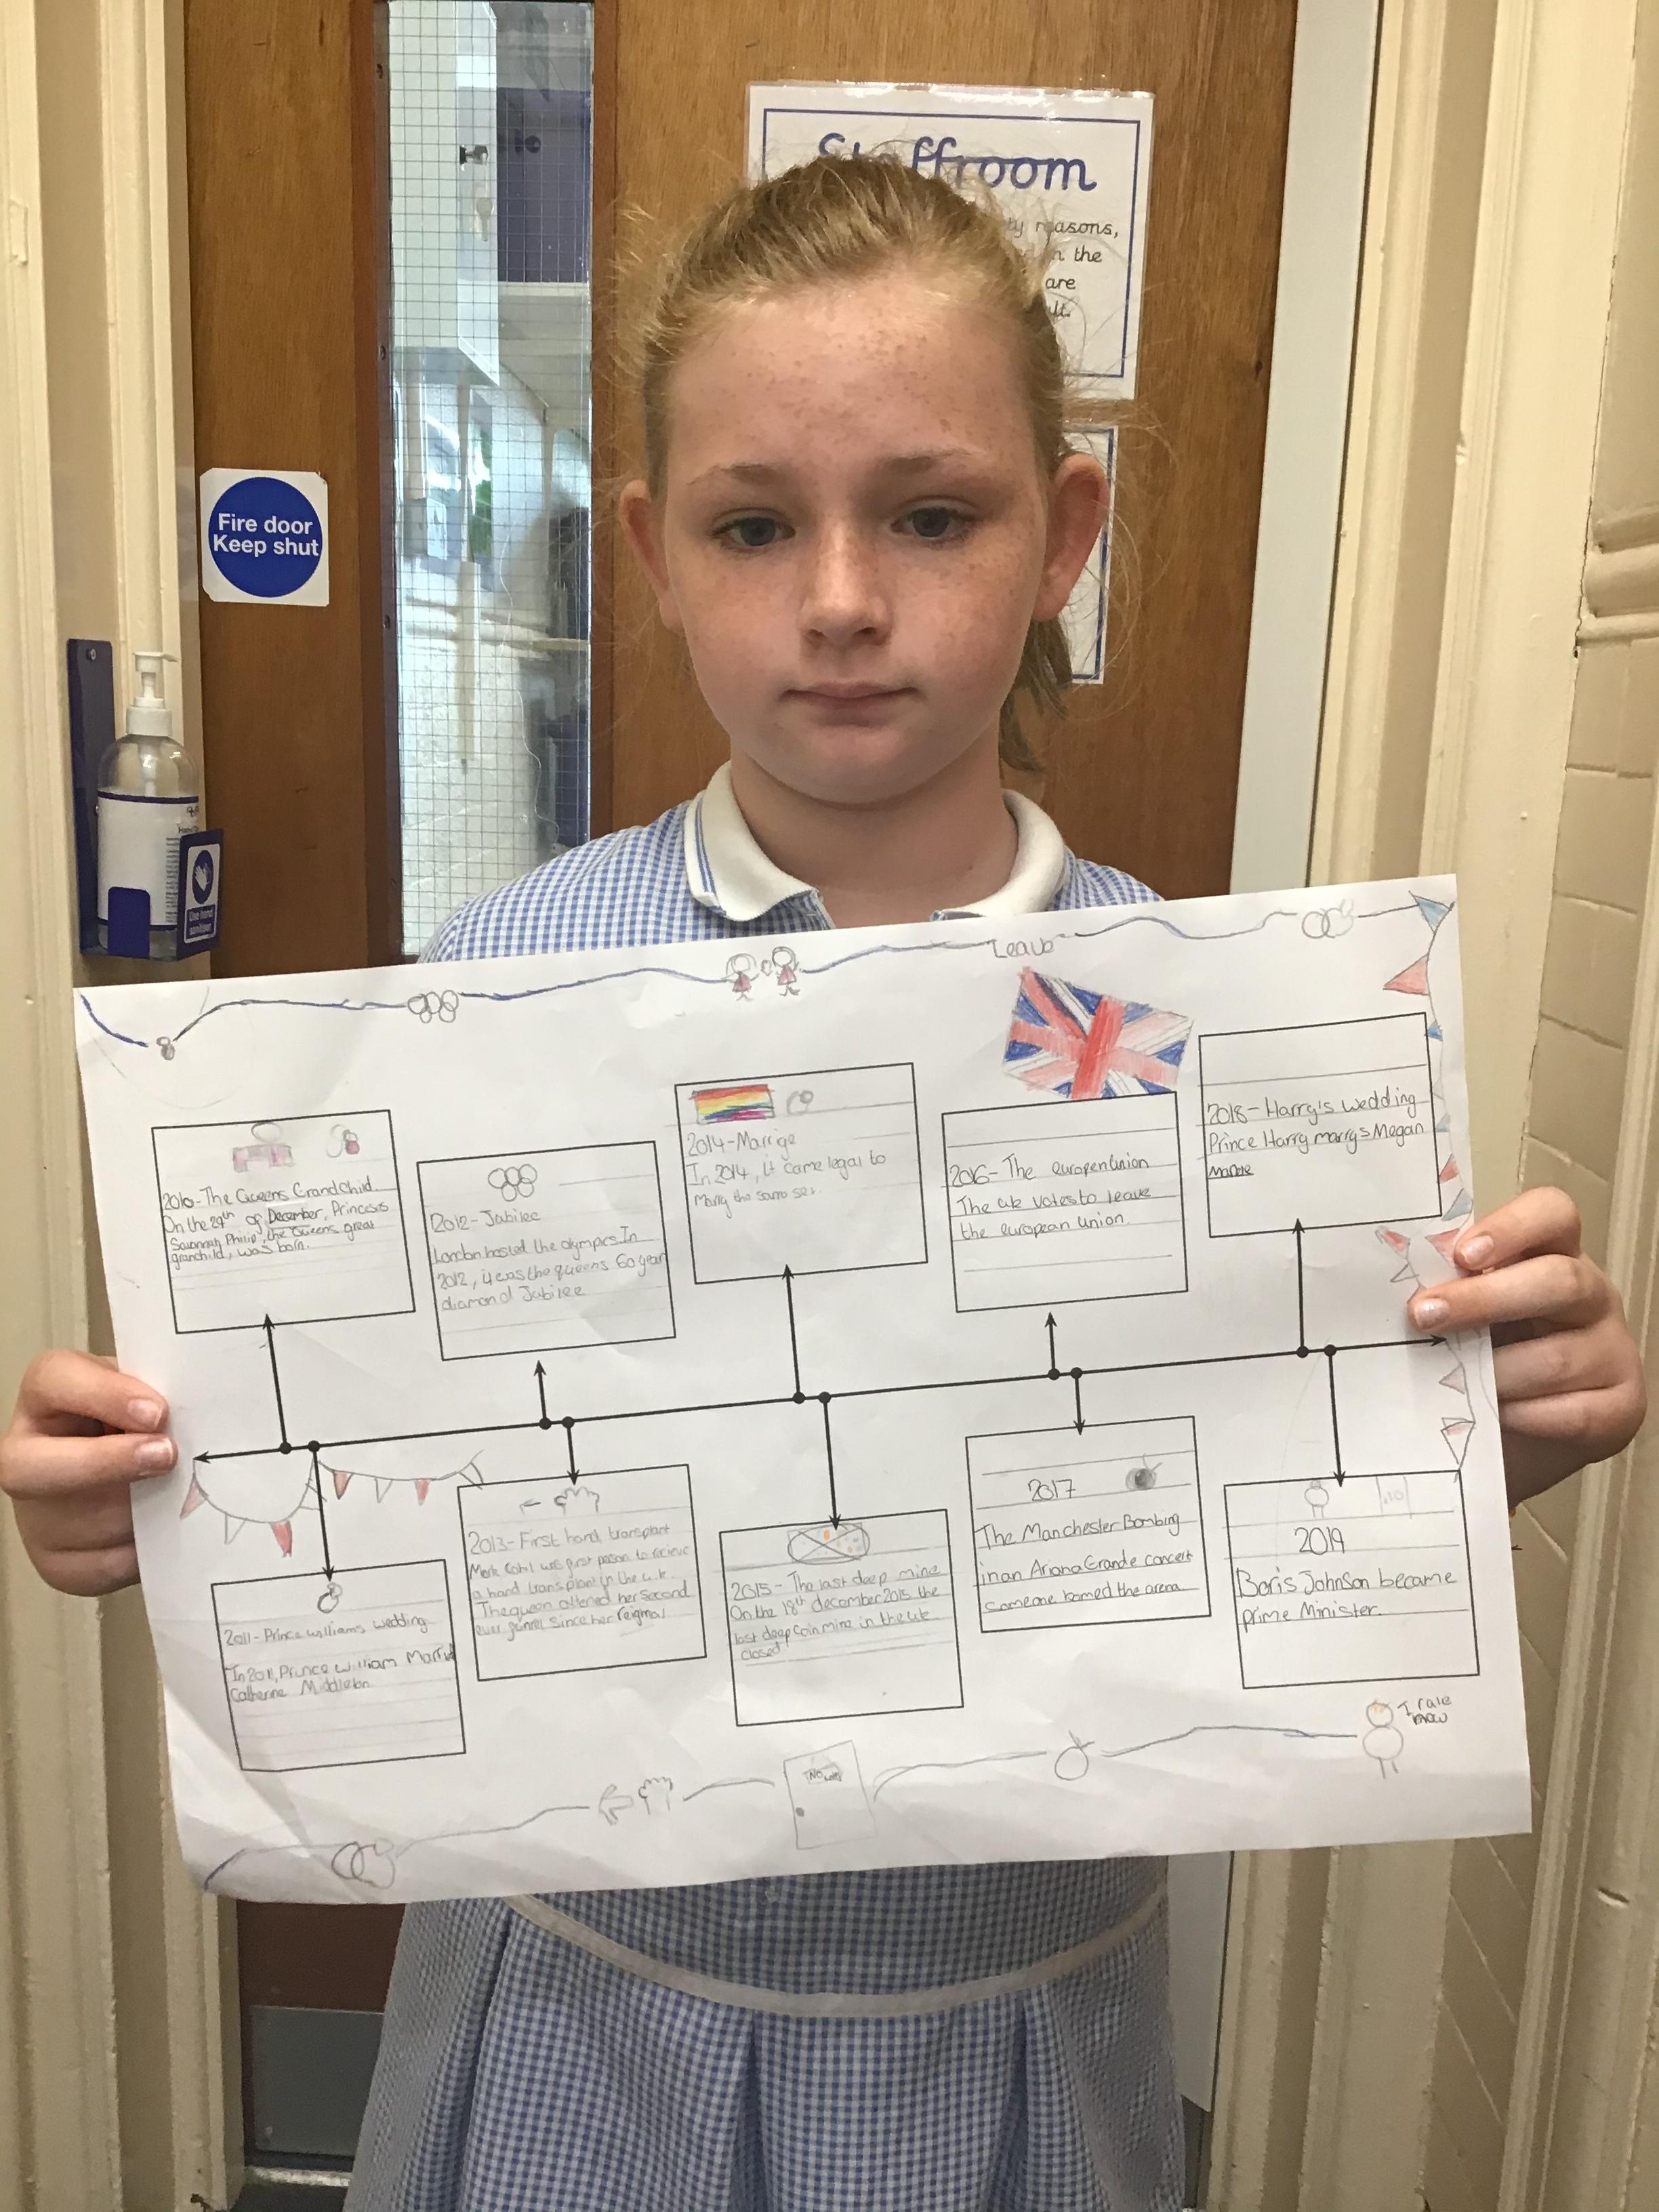 Staffroom
ty reasons,
in the
are
ult.
Fire door
Keep shut
Use hand
sanitiser
Leave
2010-The Queens Grandchild.
On the 29th of December, Princess
Savannah Philip, the Queens great
granchild, was born.
2012-Jubilee
London hosted the olympics In
2012, it was the queens 60 year
diamond Jubilee
2014-Marrige
In 2014, it came legal to
marry the same sex.
2016-The europen Union
The uk votes to leave
the european Union.
2018-Harry's wedding
Prince Harry marrys Megan
2011-Prince williams wedding
In 2011, Prince william
Catherine Middleton
2013-First hand transplant
Mark Cahil was first person to recieve
a hand transplant in the u.k.
The queen attened her second
ever since her reigmal
2015-The last deep mine
On the 18th december 2015 the
last deep Coin mine in the uk
closed
2017
The Manchester Bombing
in an Ariana Grande concert
someone bomed the arena
2019
Boris Johnson became
prime Minister.
I rule
know
NO